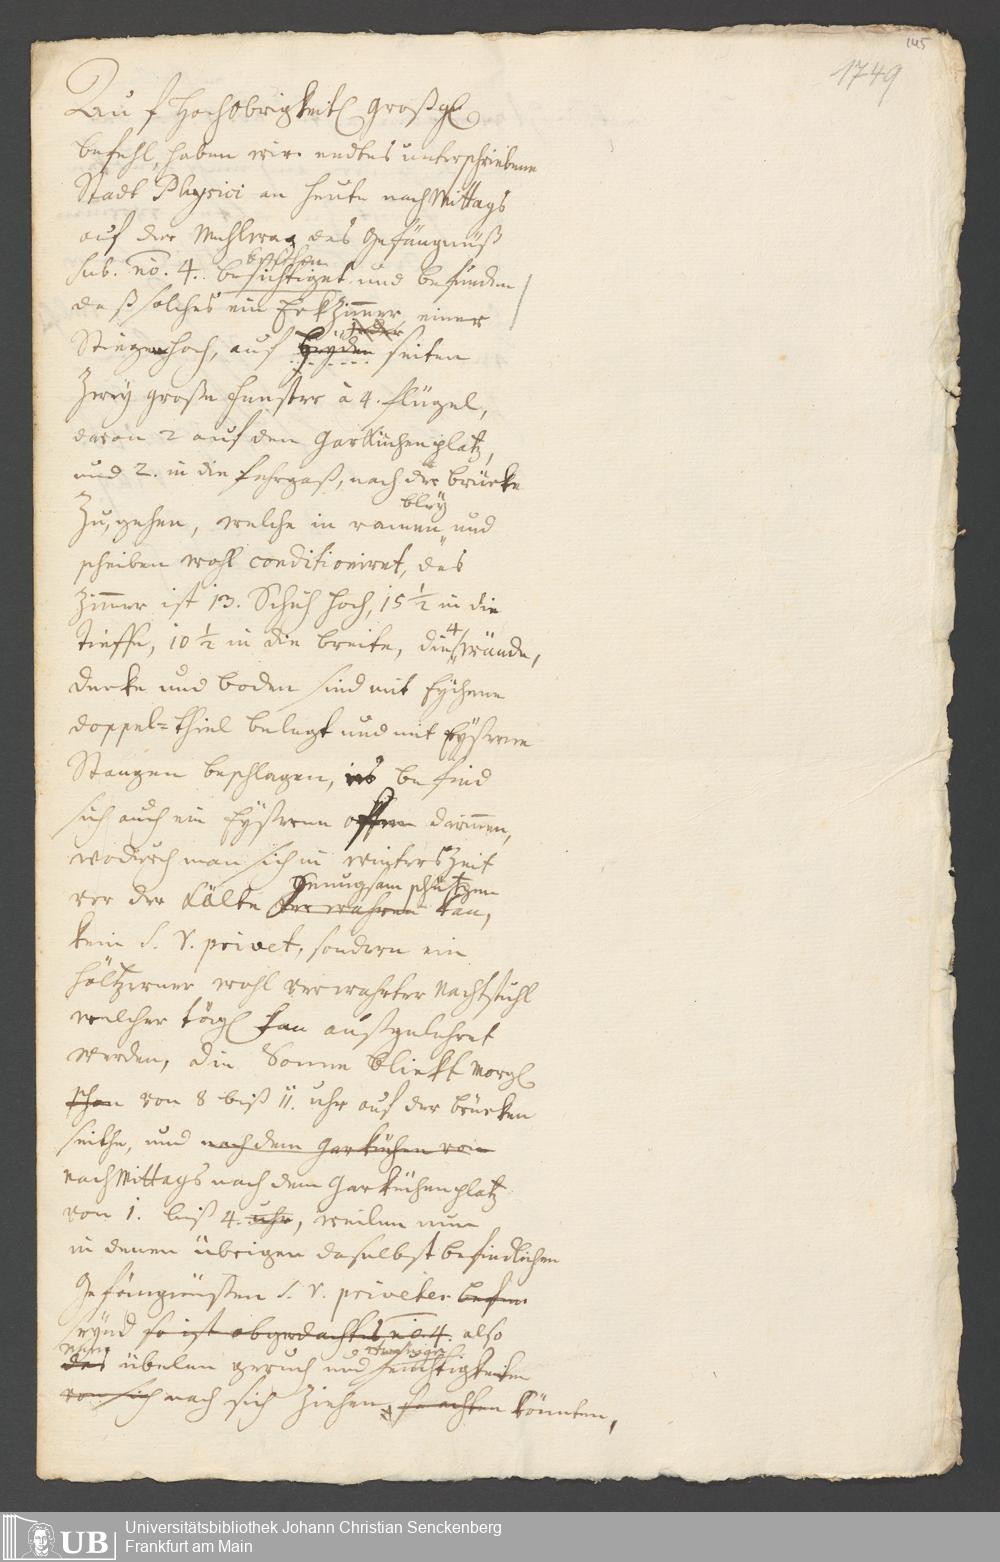 145
1749
Auf HochObrigkeitl Großgl
befehl, haben wir endtes unterschriebene
Stadt Physici an heute nach Mittags
auf der Mehlwag das Gefängnüß
sub. no. 4. besichtiget und befunden
daß solches ein Eckzimmer einer
Stiegen hoch, auf beyden seiten
zwey große Fenster à 4. flügel,
davon 2 auf den Garküchenplatz,
und 2. in die fahrgaß, nach der brücke
bley
zu, gehen, welche in ramen und
scheiben wohl conditioniret, das
Zimmer ist 13. Schuh hoch, 15 1/2 in die
Tieffe, 10 1/2 in die breite, die 4 wände,
decke und boden sind mit Eychene
doppel=thiel belegt und mit Eyserne
Stangen beschlagen, es befind
sich auch ein Eyserner offen darinnen,
wodurch man sich in winters Zeit
genugsam schützen
vor der Kälte verwahren kan,
kein S. V. privet, sondern ein
höltzerner wohl verwahrter Nachtstuhl
welcher tägl kan außgelehret
werden, die Sonne blickt Morgl
schon von 8 biß 11. uhr auf der brücken
seithe, und nach dem Garküchen von
nach Mittags nach dem Garküchenplatz
von 1. biß 4. uhr, weilen nun
in denen übrigen daselbst befindlichen
Gefängnüßen S. V. priveter
seynd so ist obgedachtes no. 4. also
übelen geruch und feuchtigkeiten
von sich nach sich ziehen, könnten,
UB
Universitätsbibliothek Johann Christian Senckenberg
Frankfurt am Main